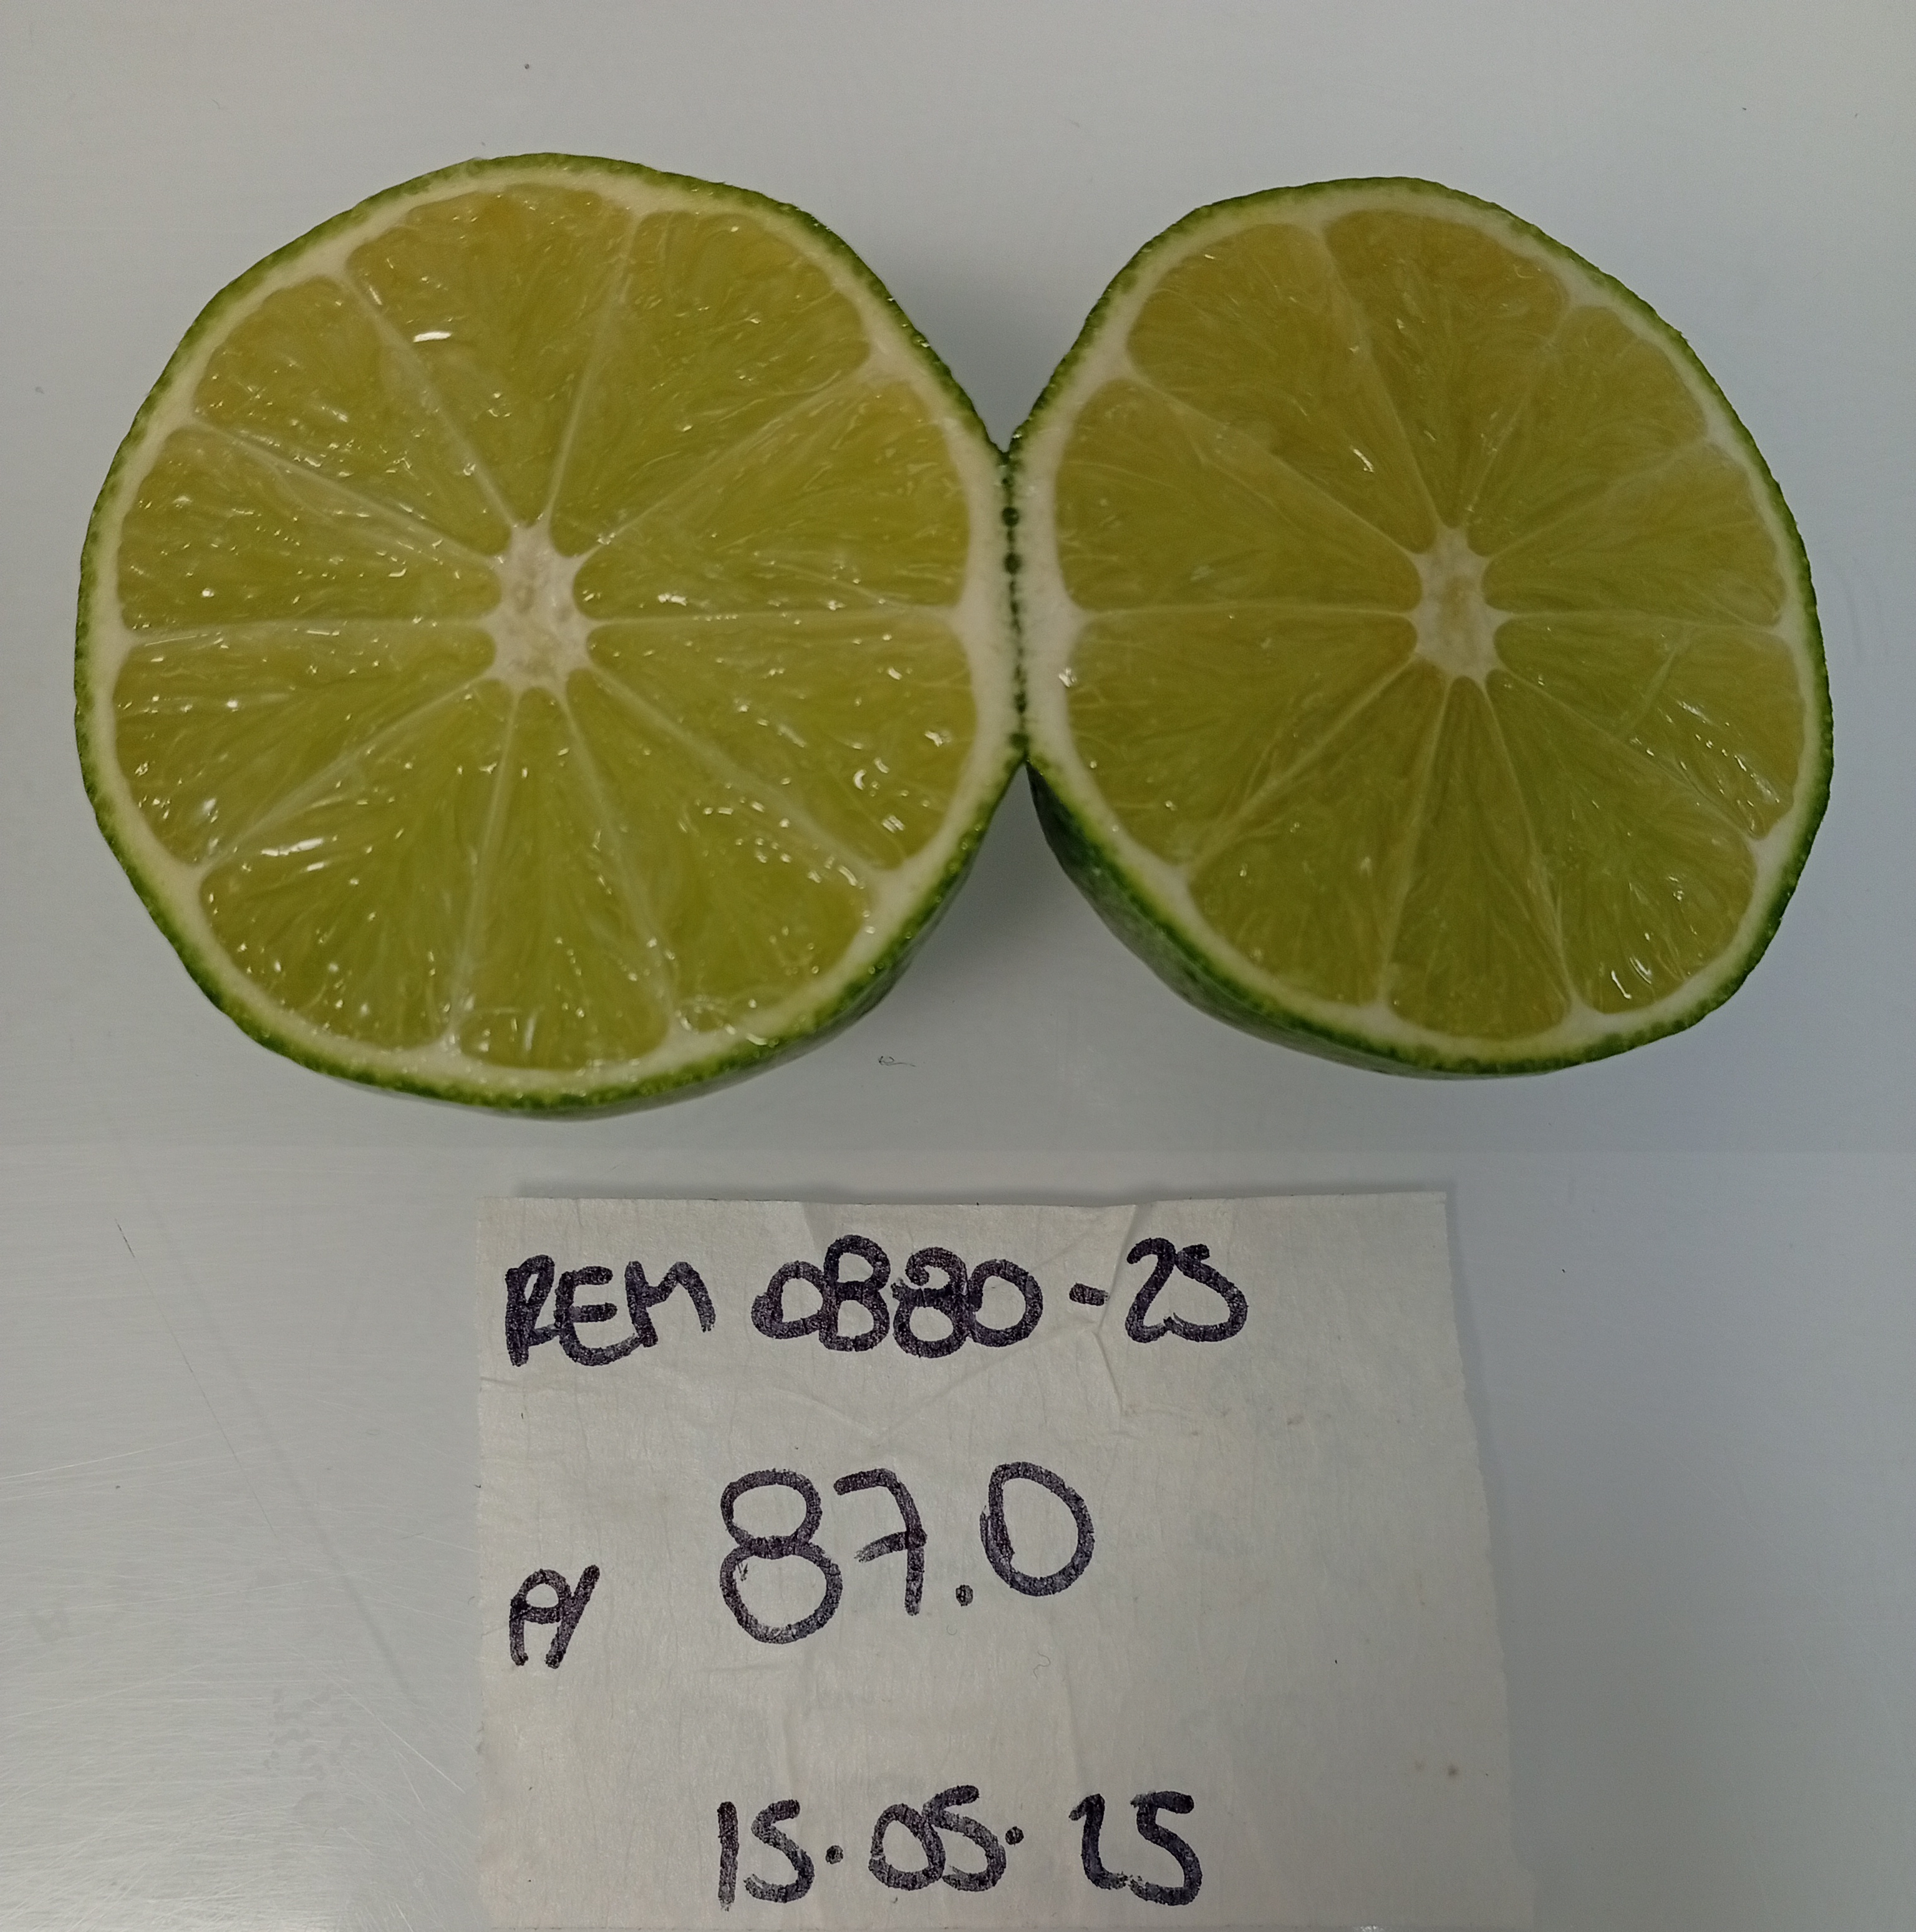 REM 0880-25
87.0
15.05.25